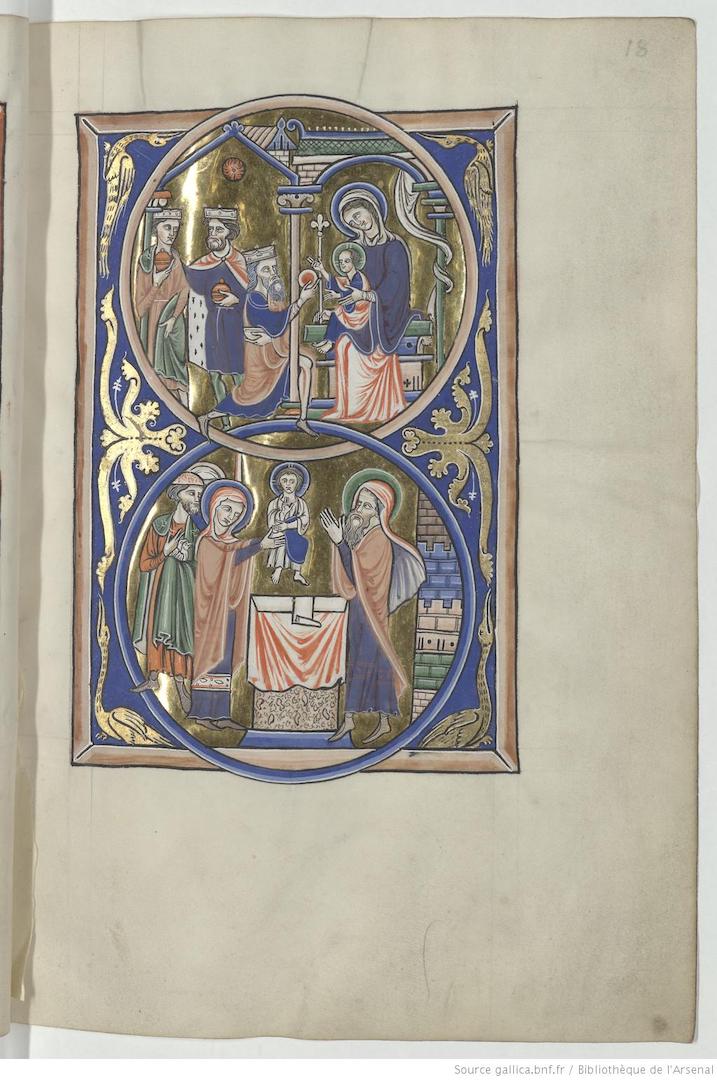 18
Source gallica.bnf.fr / Bibliothèque de l'Arsenal